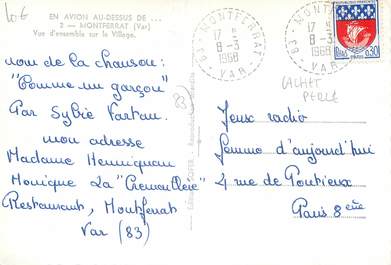 Lot
EN AVION AU-DESSUS DE . . .
2 — MONTFERRAT (Var)
Vue d'ensemble sur le Village.
83 - MONTFERRAT
17 H
8-3
1968
VAR
83 - MONTFERRAT
17 H
8-3
1968
VAR
0,30
PARIS
CACHET
PERLÉ
nom de la chanson:
"Comme un garçon"
Par Sylvie Vartan.
mon adresse
Madame Henniqueau
Monique La "Cremaillère"
Restaurant, Montferrat
Var (83)
83
Jeux radio
Femme d'aujourd'hui
4 rue de Pontieux
Paris 8eme